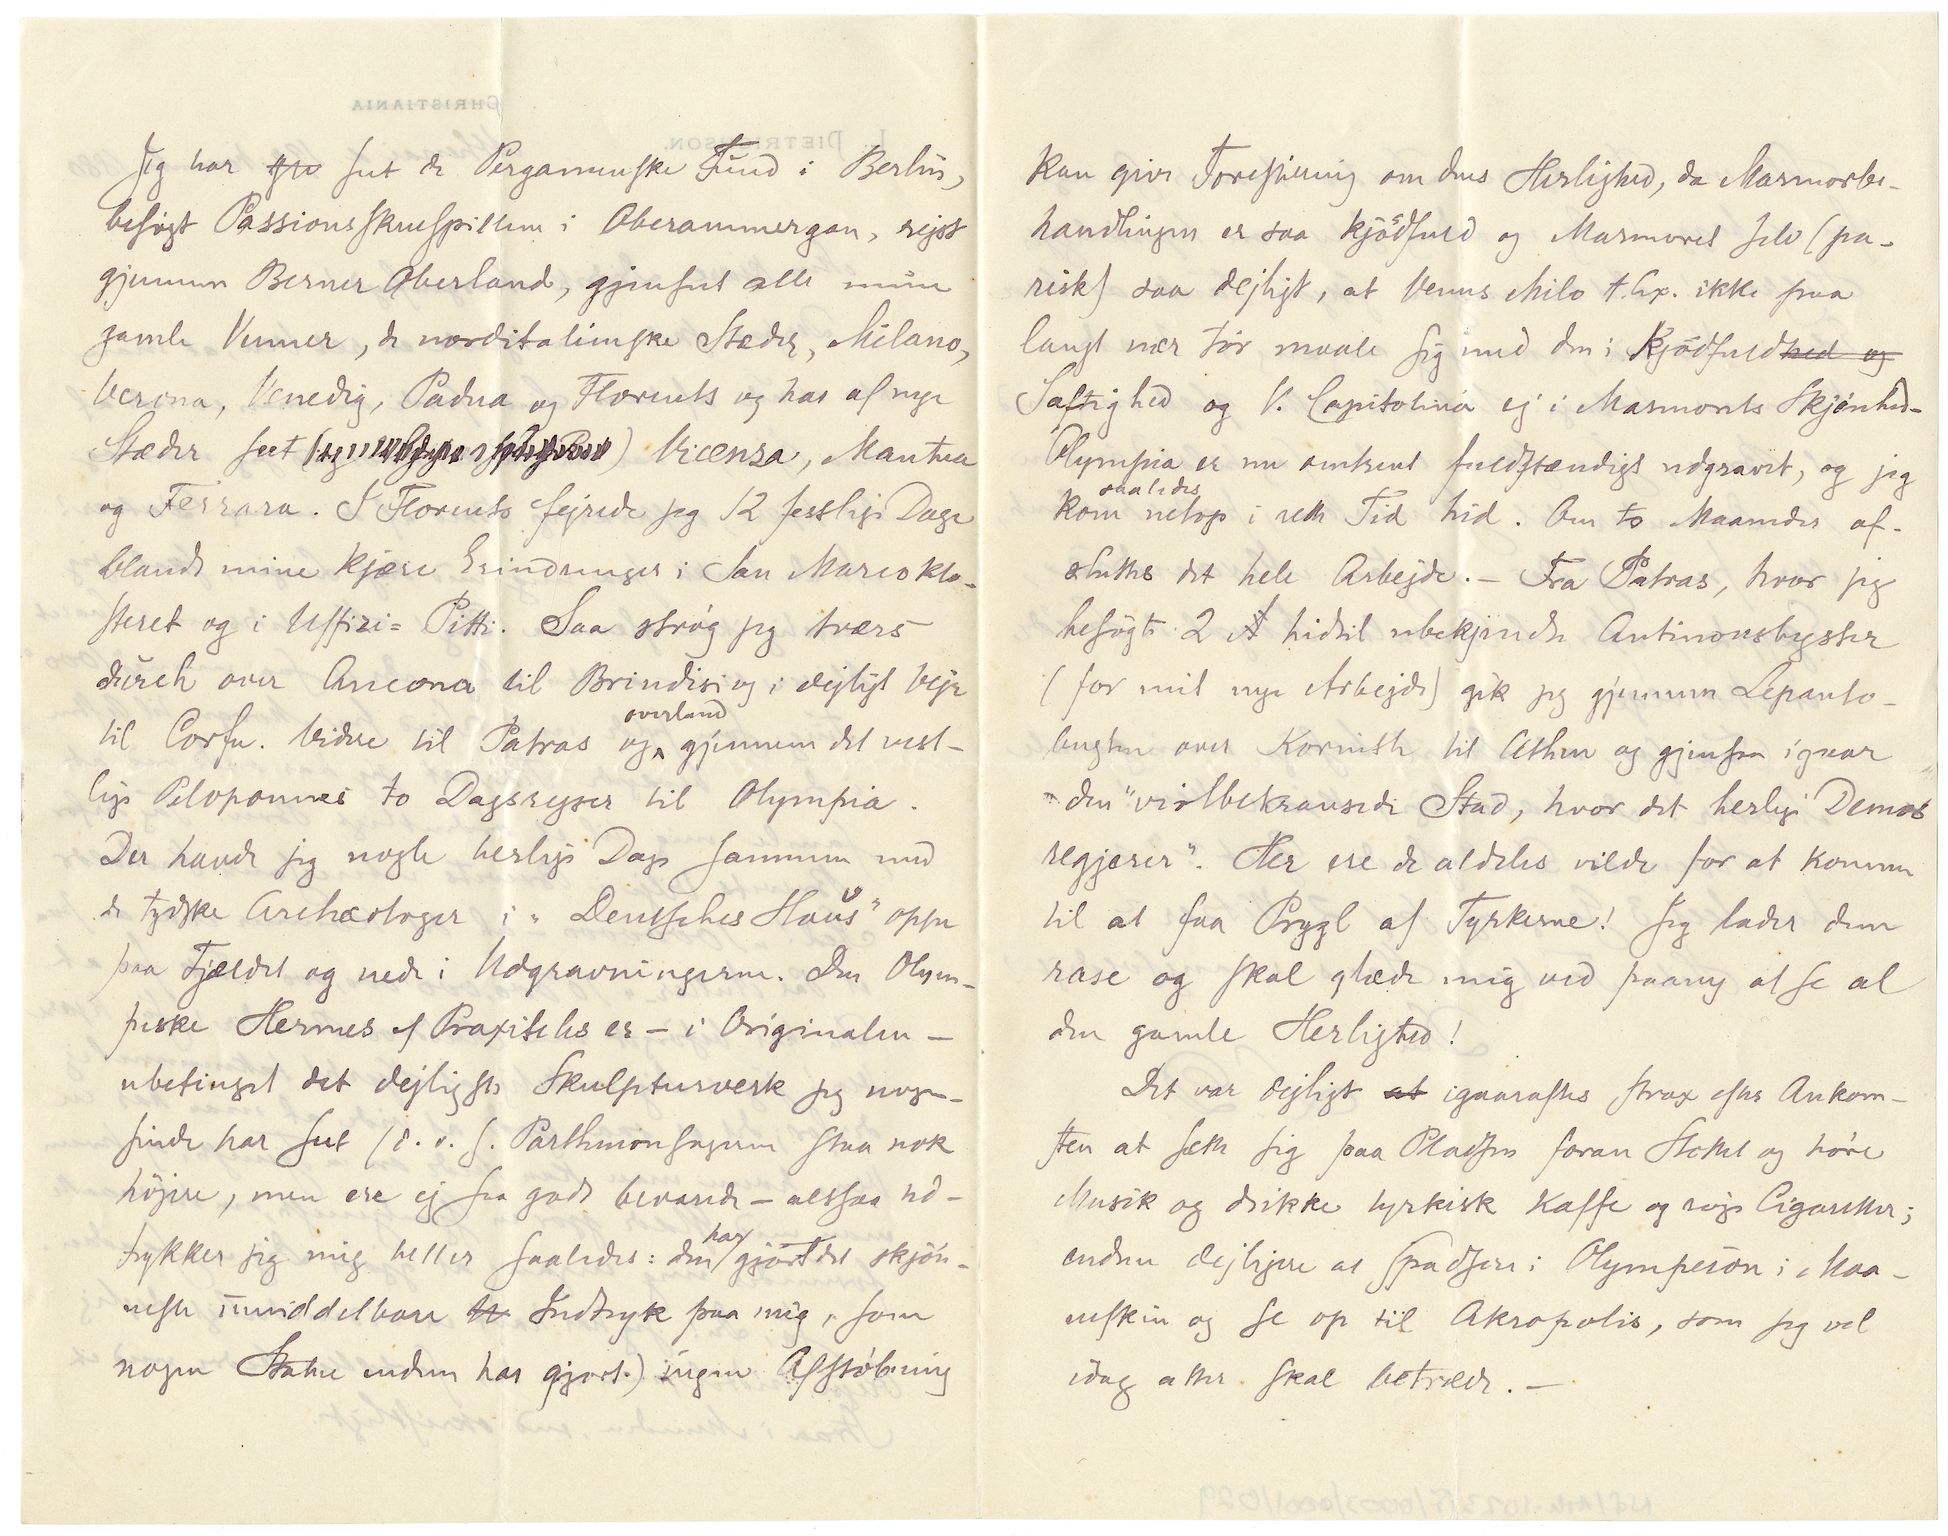 Jeg har seet de Pergamenske Fund i Berlin,
besøgt Passionsskuespillene i Oberammergau, rejst
gjennem Berner Oberland, gjenseet alle mine
gamle Venner, de norditalienske Stæder, Milano,
Verona, Venedig, Padua og Florents og har af nye
Stæder seet Vicenza, Mantua
og Ferrara. I Florents fejrede jeg 12 festlige Dage
blandt mine kjære Erindringer i San Marco klo-
steret og i Uffizi= Pitti. Saa strøg jeg tværs
durch over Ancona til Brindisi og i dejligt Vejr
til Corfu. Videre til Patras og overland gjennem det vest-
lige Peloponnes to Dagsrejser til Olympia.
Der havde jeg nogle herlige Dage sammen med
de tydske Archæologer i "Deutsches Haus" oppe
paa Fjældet og nede i Udgravningerne. Den Olym-
piske Hermes af Praxiteles er – i Originalen –
ubetinget det dejligste Skulpturværk jeg nogen-
sinde har seet (d. v. s. Parthenonsagerne staa nok
højere, men ere ej saa godt bevarede – altsaa ud-
trykker jeg mig heller saaledes: den har gjort det skjøn-
neste umiddelbare Indtryk paa mig, som
nogen Statue endnu har gjort.) ingen Afstøbning
kan give Forestilling om dens Herlighed, da Marmorbe-
handlingen er saa kjödfuld og Marmoret selv (pa-
risk) saa dejligt, at Venus Milo t. Ex. ikke paa
langt nær tør maale sig med den i Kjödfuldhed og
Saftighed og V. Capitolina ej i Marmorets Skjønhed.
Olympia er nu omtrent fuldstændigt udgravet, og jeg
kom saaledes netop i rette Tid hid. Om to Maaneder af-
sluttes det hele Arbejde. – Fra Patras, hvor jeg
besøgte 2 hidtil ubekjendte Antinousbyster
(for mit nye Arbejde) gik jeg gjennem Lepanto-
bugten over Korinth til Athen og gjensaa igaar
den "violbekransede Stad, hvor det herlige Demos
regjerer". Her ere de aldeles vilde for at komme
til at faa Prygl af Tyrkerne! Jeg lader dem
rase og skal glæde mig ved paany at se al
den gamle Herlighed!
Det var dejligt at igaaraftes strax efter Ankom-
sten at sætte sig paa Pladsen foran Slottet og høre
Musik og drikke tyrkisk Kaffe og røge Cigaretter;
endnu dejligere at spadsere i Olympeion i Maa-
neskin og se op til Akropolis, som jeg vel
idag atter skal betræde. –
CHRISTIANIA
L. DIETRICHSON.